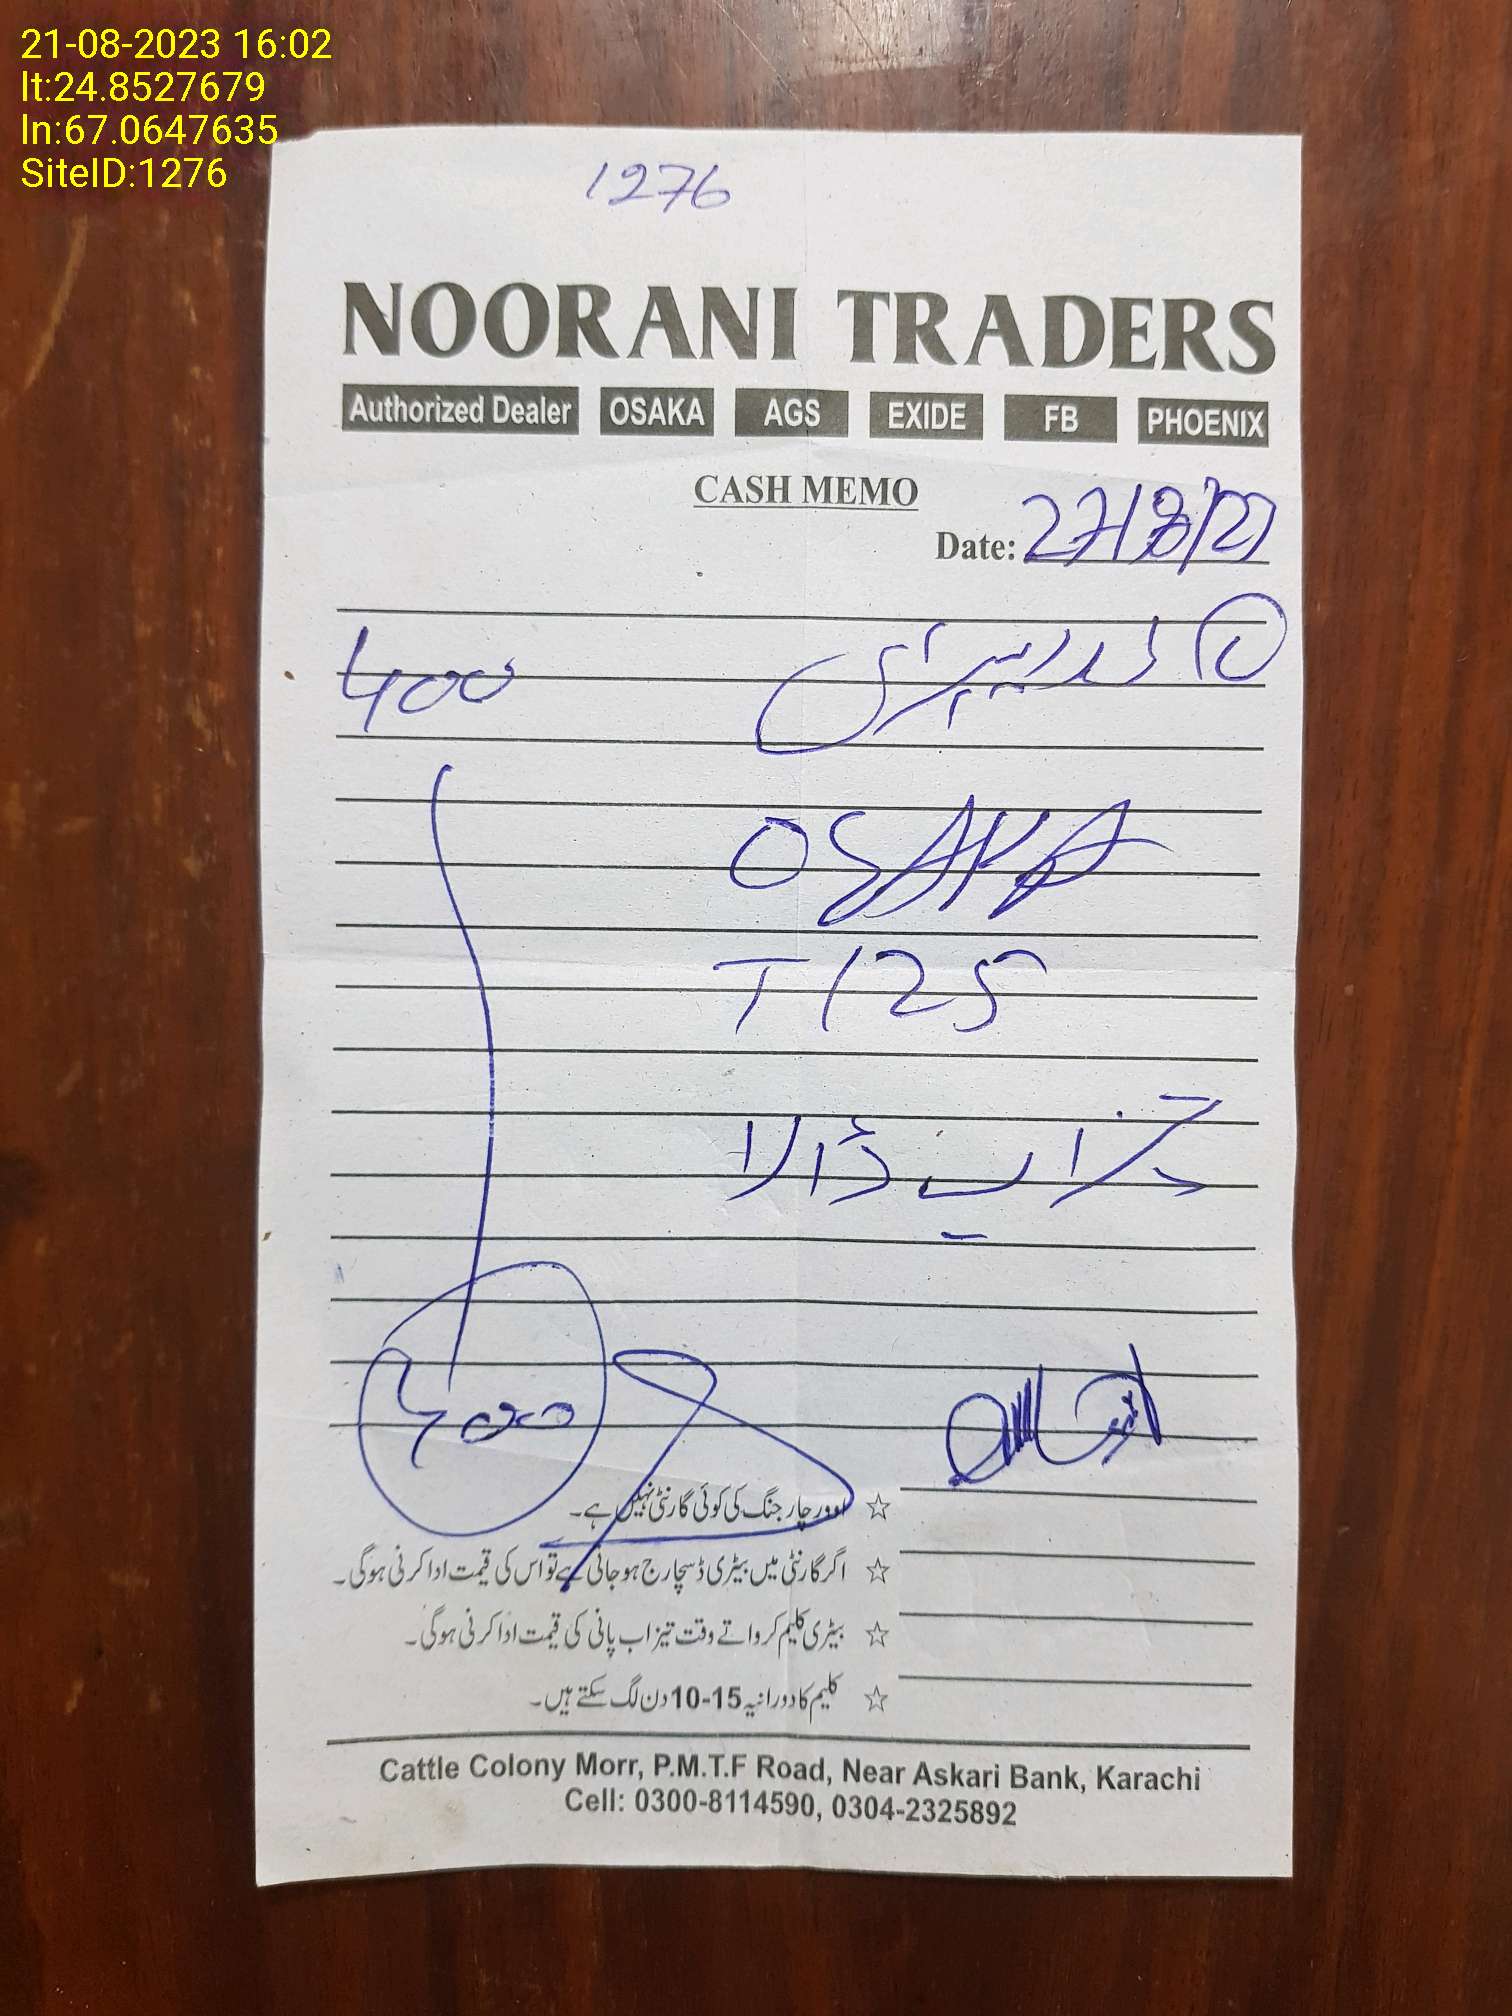 21-08-2023 16:02
lt:24.8527679
ln:67.0647635
SiteID:1276
1276
NOORANI TRADERS
Authorized Dealer OSAKA AGS EXIDE FB PHOENIX
CASH MEMO
Date:
400
OSAKA
T125
تیزاب ڈالا
400
☆ اوور چارجنگ کی کوئی گارنٹی نہیں ہے۔
☆ اگر گارنٹی میں بیٹری ڈسچارج ہو جاتی ہے تو اس کی قیمت ادا کرنی ہوگی۔
☆ بیٹری کلیم کرواتے وقت تیزاب پانی کی قیمت ادا کرنی ہوگی۔
☆ کلیم کا دورانیہ 15-10 دن لگ سکتے ہیں۔
Cattle Colony Morr, P.M.T.F Road, Near Askari Bank, Karachi
Cell: 0300-8114590, 0304-2325892